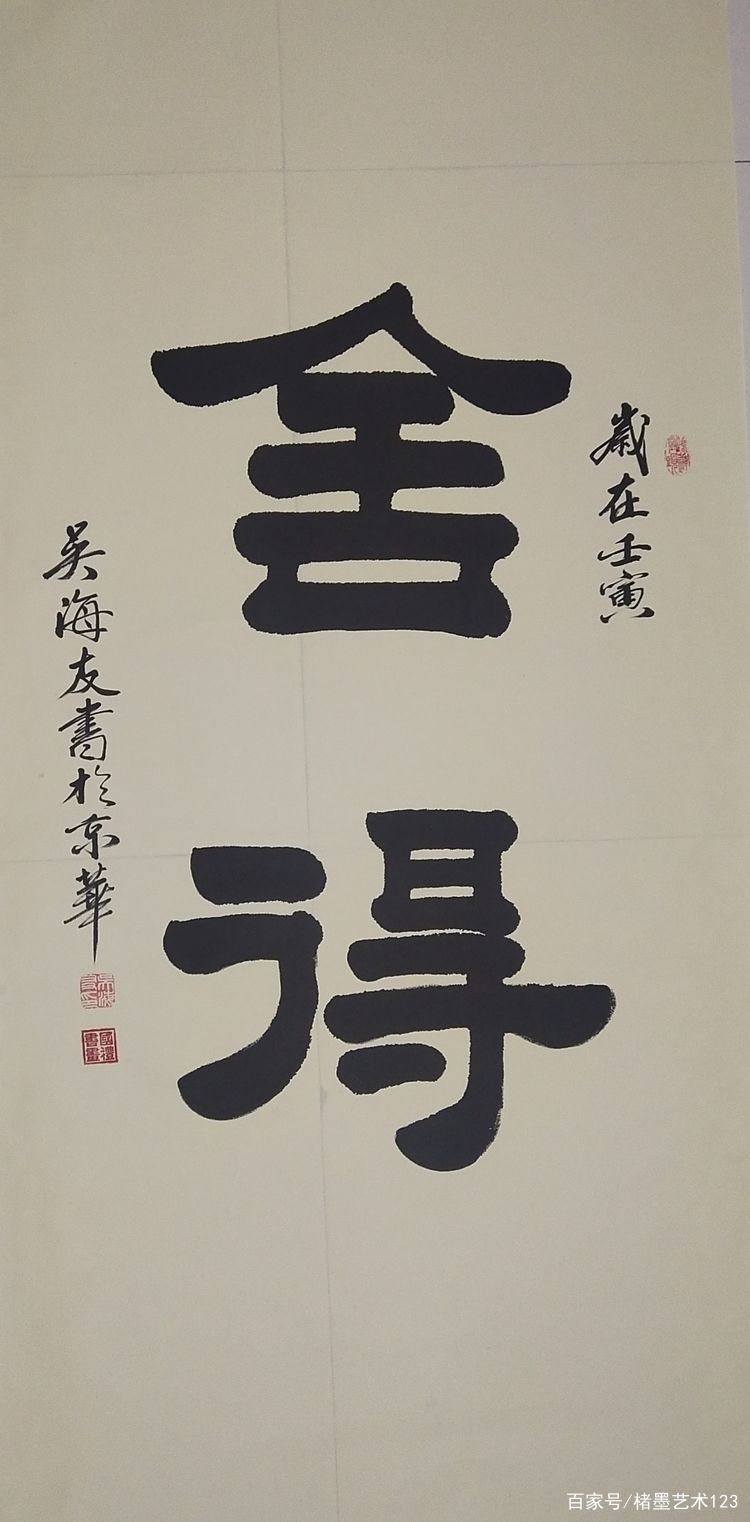 舍得
歲在壬寅
吴海友書於京華
國禮書畫
百家号/楮墨艺术123